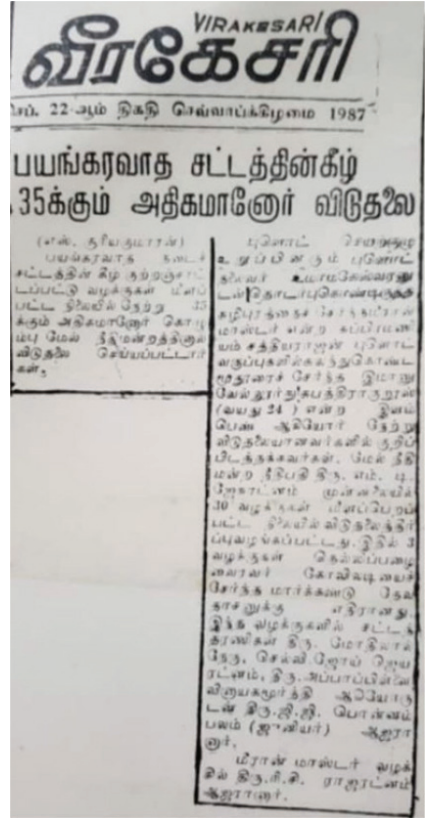 VIRAKESARI
வீரகேசரி
செப். 22-ஆம் திகதி செவ்வாய்க்கிழமை 1987
பயங்கரவாத சட்டத்தின்கீழ்
35க்கும் அதிகமானோர் விடுதலை
(எஸ். சூரியகுமாரன்)
பயங்கரவாத தடைச்
சட்டத்தின் கீழ் குற்றஞ்சாட்
டப்பட்டு வழக்குகள் மீளப்
பட்ட நிலையில் நேற்று 35
க்கும் அதிகமானோர் கொழு
ம்பு மேல் நீதிமன்றத்தினால்
விடுதலை செய்யப்பட்டார்
கள்.
புளொட் செயற்குழு
உறுப்பினரும் புளொட்
தலைவர் உமாமகேஸ்வரனு
டன் தொடர்புகொண்டிருந்த
சுழிபுரத்தைச் சேர்ந்த மீரான்
மாஸ்டர் என்ற சுப்பிரமணி
யம் சத்தியராஜன் புளொட்
வகுப்புகளில் கலந்துகொண்ட
மூதூரைச் சேர்ந்த இமானு
வேல் தூர்து சுபத்திராகுரூஸ்
(வயது 24) என்ற இளம்
பெண் ஆகியோர் நேற்று
விடுதலையானவர்களில் குறிப்
பிடத்தக்கவர்கள். மேல் நீதி
மன்ற நீதிபதி திரு. எம். டி.
ஜேசுரட்னம் முன்னிலையில்
30 வழக்குகள் மீளப்பெறப்
பட்ட நிலையில் விடுதலைத்தீர்
ப்பு வழங்கப்பட்டது. இதில் 3
வழக்குகள் தெல்லிப்பழை
வைரவர் கோவிலடியைச்
சேர்ந்த மார்க்கண்டு தேவ
தாசனுக்கு எதிரானது.
இந்த வழக்குகளில் சட்டத்
தரணிகள் திரு. மோதிலால்
நேரு, செல்வி.ஜோய் ஜெய
ரட்னம், திரு.அப்பாப்பிள்ளை
வினாயகமூர்த்தி ஆகியோரு
டன் திரு.ஜி.ஜி. பொன்னம்
பலம் (ஜுனியர்) ஆஜரா
னார்.
மீரான் மாஸ்டர் வழக்
கில் திரு.சி.சி. ராஜரட்னம்
ஆஜரானார்.